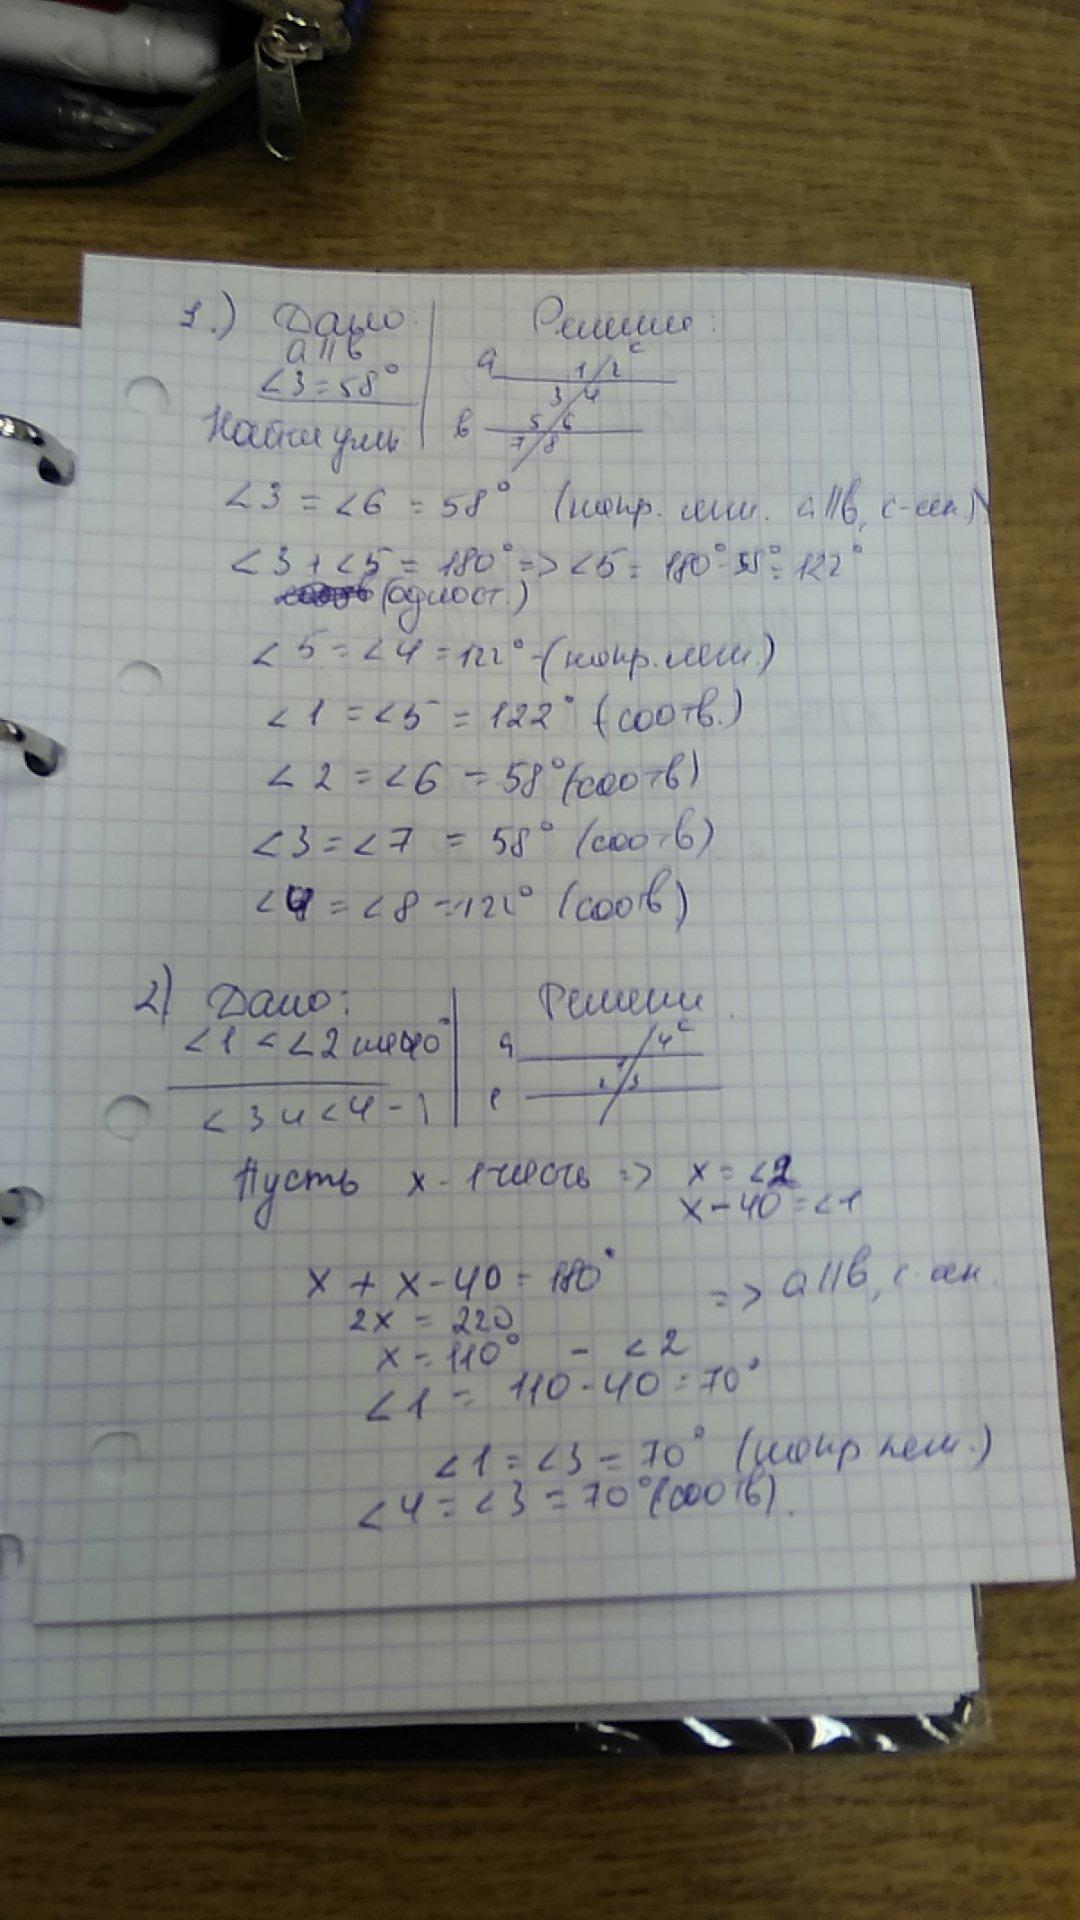 1.) Дано:
a || b
<3 = 58°
Найти углы
Решение:
a 1 2 c
3 4
b 5 6
7 8
<3 = <6 = 58° (накр. леж. a||b, c-сек.)
<3 + <5 = 180° => <5 = 180° - 58° = 122°
(одност.)
<5 = <4 = 122° - (накр. леж.)
<1 = <5 = 122° (соотв.)
<2 = <6 = 58° (соотв)
<3 = <7 = 58° (соотв)
<4 = <8 = 122° (соотв)
2) Дано:
<1 < <2 на 40°
<3 и <4 - ?
Решени
a 4 c
1
2 3
Пусть x - 1 часть => x = <2
x - 40 = <1
x + x - 40 = 180°
=> a||b, c сек.
2x = 220
x = 110° - <2
<1 = 110 - 40 = 70°
<1 = <3 = 70° (накр леж.)
<4 = <3 = 70° (соотв).